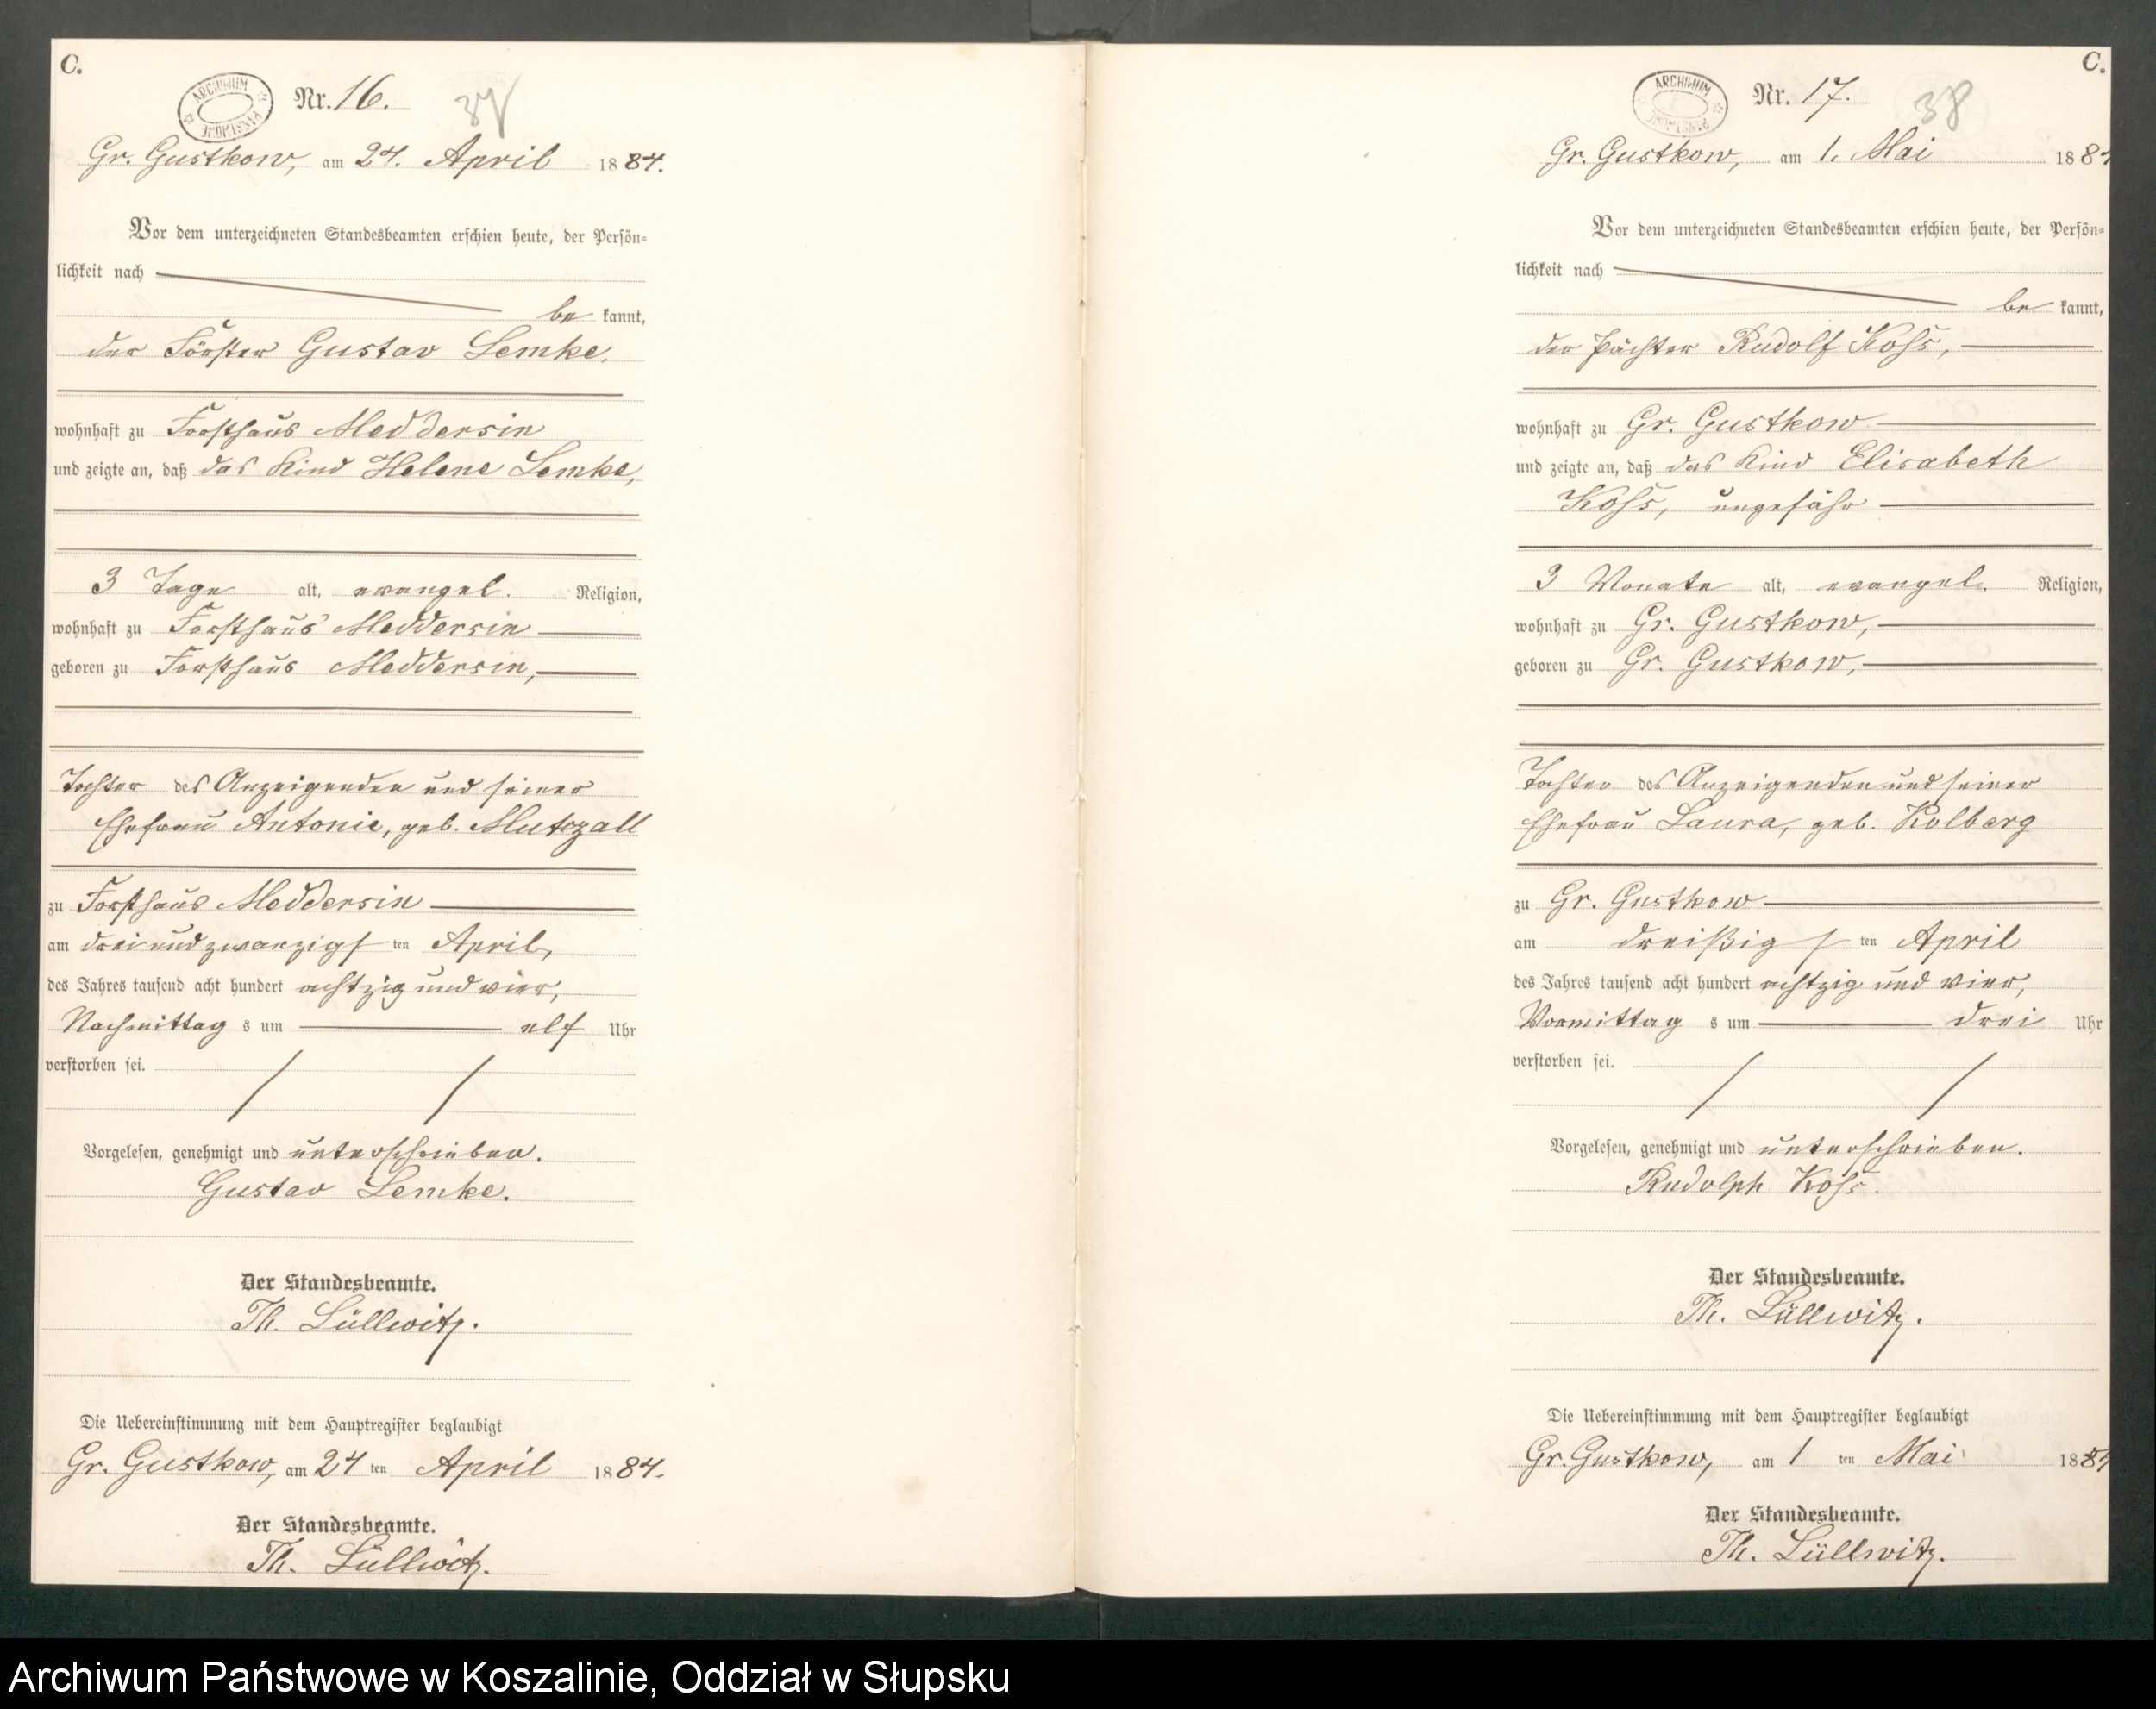 C.
ARCHIWUM PAŃSTWOWE
Nr. 16.
37
Gr. Gustkow, am 24. April 1884.
Vor dem unterzeichneten Standesbeamten erschien heute, der Persön-
lichkeit nach
be kannt,
der Förster Gustav Lemke,
wohnhaft zu Forsthaus Meddersin
und zeigte an, daß das Kind Helene Lemke,
3 Tage alt, evangel. Religion,
wohnhaft zu Forsthaus Meddersin
geboren zu Forsthaus Meddersin,
Tochter des Anzeigenden und seiner
Ehefrau Antonie, geb. Mutzall
zu Forsthaus Meddersin
am dreiundzwanzigs ten April,
des Jahres tausend acht hundert achtzig und vier,
Nachmittag s um elf Uhr
verstorben sei.
Vorgelesen, genehmigt und unterschrieben.
Gustav Lemke.
Der Standesbeamte.
Th. Lüllwitz.
Die Uebereinstimmung mit dem Hauptregister beglaubigt
Gr. Gustkow, am 24 ten April 1884.
Der Standesbeamte.
Th. Lüllwitz.
C.
ARCHIWUM PAŃSTWOWE
Nr. 17.
38
Gr. Gustkow, am 1. Mai 1884
Vor dem unterzeichneten Standesbeamten erschien heute, der Persön-
lichkeit nach
be kannt,
der Pächter Rudolf Koss,
wohnhaft zu Gr. Gustkow
und zeigte an, daß das Kind Elisabeth
Koss, ungefähr
3 Monate alt, evangel. Religion,
wohnhaft zu Gr. Gustkow,
geboren zu Gr. Gustkow,
Tochter des Anzeigenden und seiner
Ehefrau Laura, geb. Kolberg
zu Gr. Gustkow
am dreißig s ten April
des Jahres tausend acht hundert achtzig und vier,
Vormittag s um drei Uhr
verstorben sei.
Vorgelesen, genehmigt und unterschrieben.
Rudolph Koss.
Der Standesbeamte.
Th. Lüllwitz.
Die Uebereinstimmung mit dem Hauptregister beglaubigt
Gr. Gustkow, am 1 ten Mai 1884
Der Standesbeamte.
Th. Lüllwitz.
Archiwum Państwowe w Koszalinie, Oddział w Słupsku